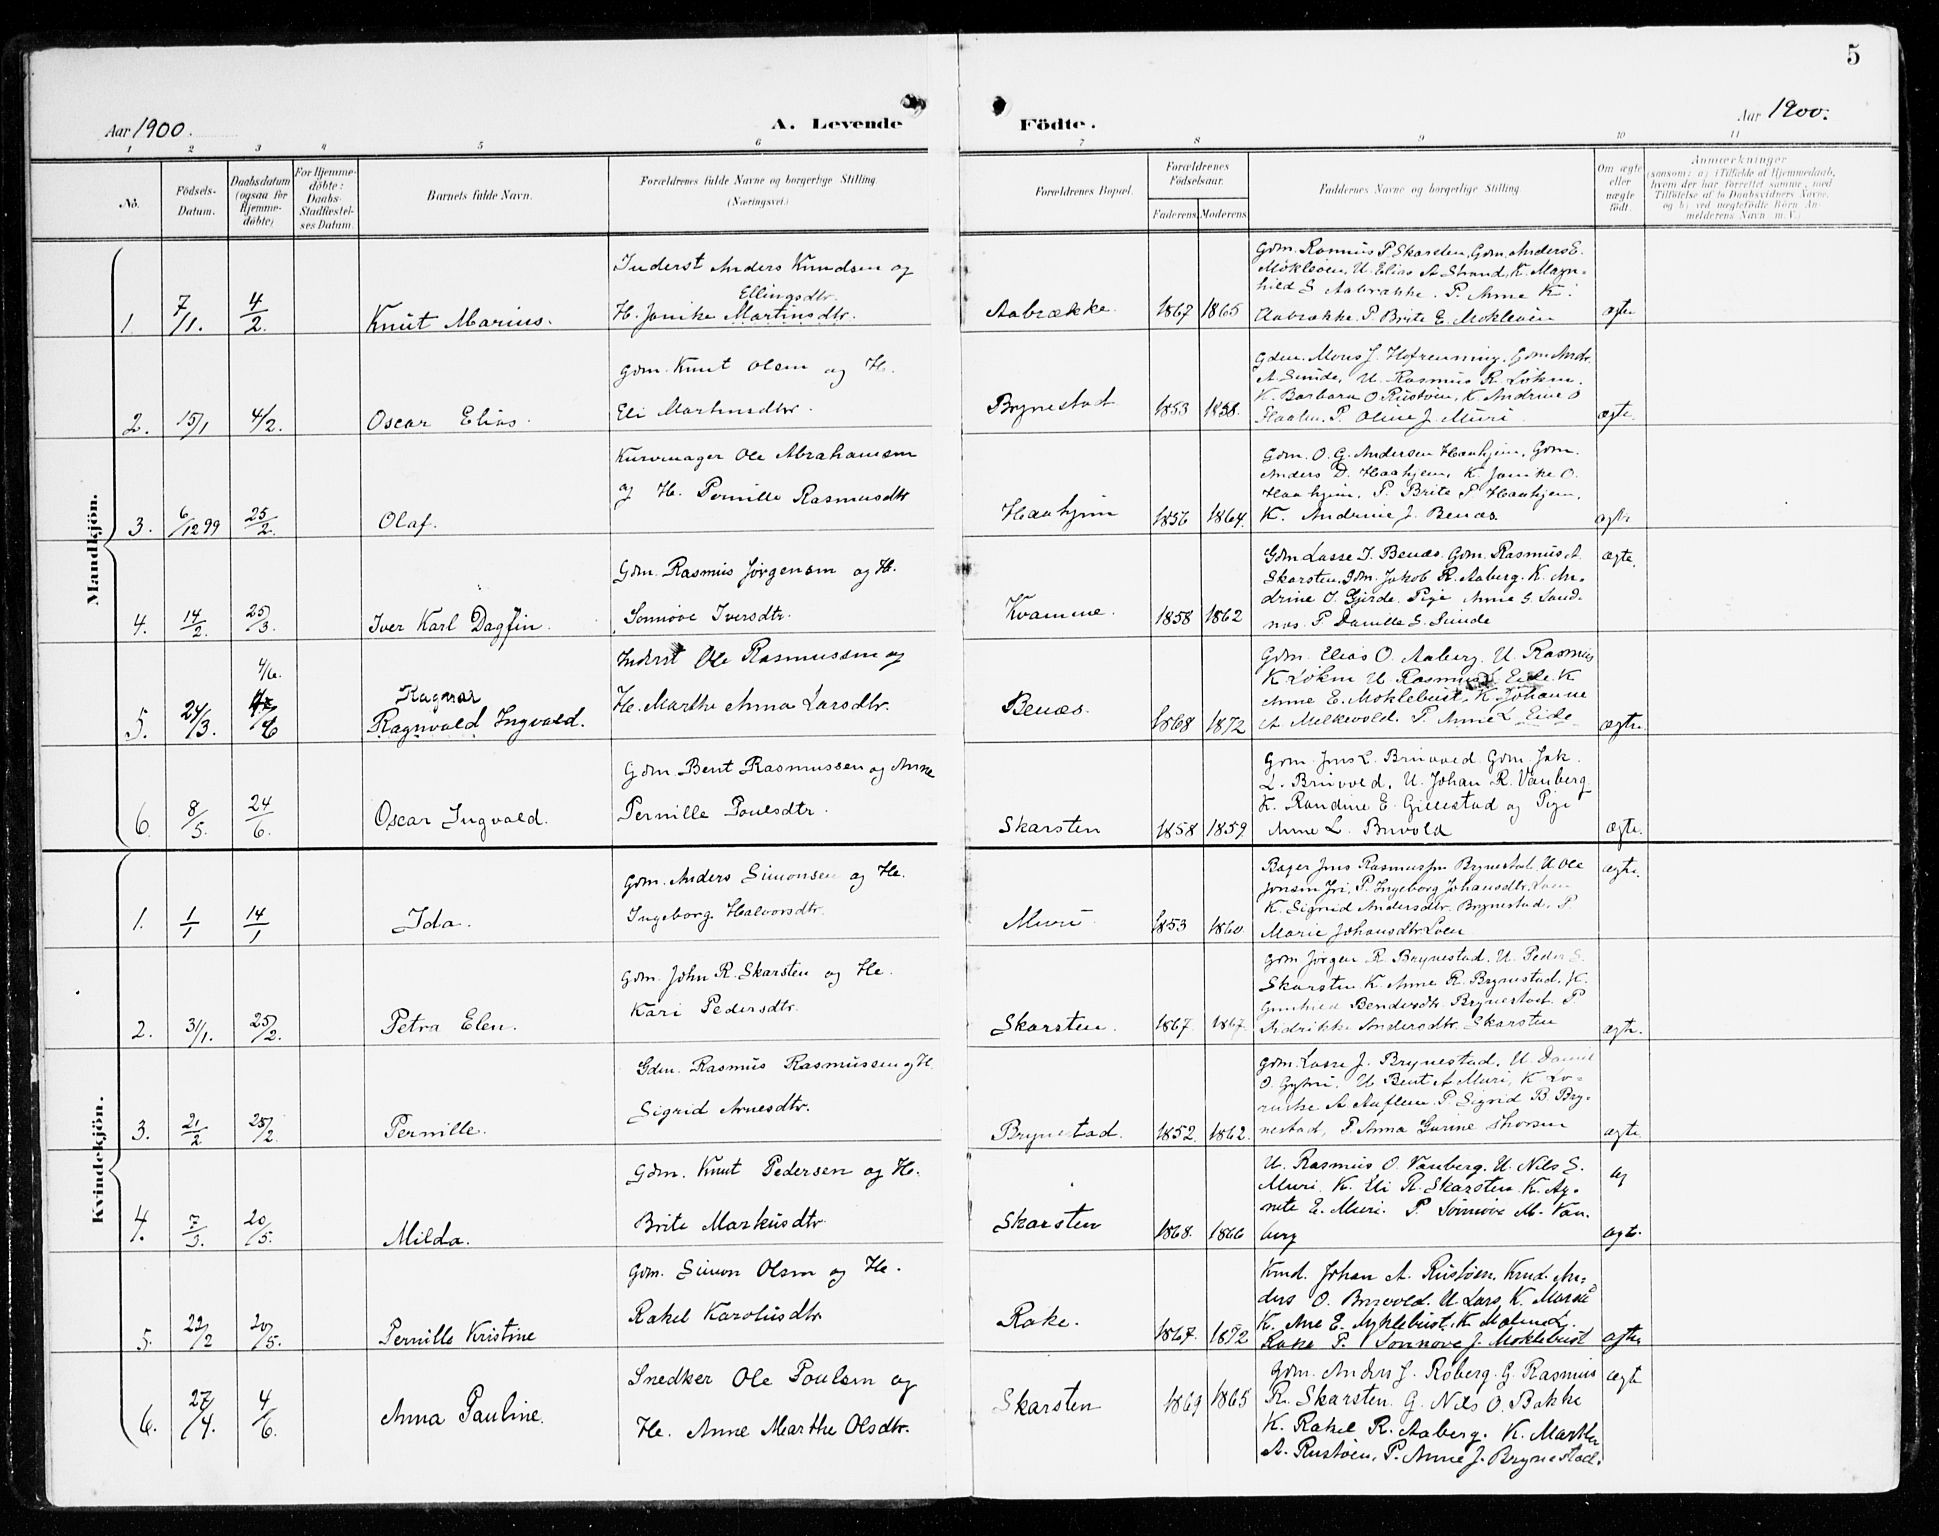 5
Aar 1900.
A. Levende
Födte.
Aar 1900.
1 2 3 4 5 6 7 8 9 10 11
No.
Födsels-
Datum.
Daabsdatum
(ogsaa for
Hjemme-
döbte)
For Hjemme-
döbte:
Daabs-
Stadfæstel-
ses Datum.
Barnets fulde Navn.
Forældrenes fulde Navne og borgerlige Stilling
(Næringsvei.)
Forældrenes Bopæl.
Forældrenes
Födselsaar.
Faderens
Moderens
Faddernes Navne og borgerlige Stilling.
Om ægte
eller
uægte
födt.
Anmærkninger
(saasom: a) i Tilfælde af Hjemmedaab,
hvem der har forrettet samme, med
Tilföielse af to Daabsvidners Navne,
og b) ved uægtefödte Börn An-
melderens Navn m. V.)
Mandkjön.
1. 7/1. 4/2 Knut Marius.
Inderst Anders Knudsen og
Ellingsdtr.
H. Jonike Martinsdtr.
Aabrække. 1867 1865
Gdm. Rasmus P. Skarsten, Gdm. Anders E.
Mökleöen, U. Elias A. Strand, K. Magn-
hild S Aabrække. P. Anne K.
Aabrække. P. Brite E. Mökleöen
ægte
2. 15/1 4/2. Oscar Elias.
Gdm. Knut Olsen og H.
Eli Martinusdtr.
Brynestad 1853 1858.
Gdm. Mons J. Hofrenning, Gdm. Andr.
A. Sunde, U. Rasmus R. Löken.
K. Barbara O Rustöen, K. Andrine O
P. Oline J. Muri
ægte.
3. 6/12 99 25/2. Olaf.
Kurvmager Ole Abrahamsen
og H. Pernille Rasmusdtr
Haahjem 1856 1864.
Gdm. O. G. Andersen Haahjem, Gdm.
Anders D. Haahjem, K. Jonike O.
Haahjem, P. Brite P. Haahjem,
K. Andrine J. Benæs.
ægte
4. 14/2. 25/3. Iver Karl Dagfin.
Gdm. Rasmus Jörgensen og H.
Sönnöve Iversdtr.
Kvamme. 1858 1862
Gdm Lasse I. Benæs. Gdm. Rasmus A
Skarsten, Gdm. Jakob R. Aaberg. K. An-
drine O. Gjerde. Pige Anne S. Sand-
nes. P Danielle S. Sunde
ægte.
4/6.
5. 24/3. Ragnar
Ragnvald Ingvald.
Inderst Ole Rasmussen og
H. Marthe Anna Larsdtr.
Benæs. 1868 1872
Gdm. Elias O. Aaberg. U. Rasmus
K Löken U Rasmus L Eide K
Anne E. Moklebust. K Johanne
A Melkevold. P. Anne L Eide
ægte.
6. 8/5. 24/6. Oscar Ingvald.
Gdm. Bent Rasmussen og Anne
Pernille Poulsdtr.
Skarsten 1858 1859.
Gdm. Jens L. Bruvold. Gdm. Jak.
L. Bruvold, U. Johan R. Vanberg
K. Randine E. Gillestad og Pige
Anne L. Bruvold
ægte.
Kvindekjön.
1. 1/1 14/1 Ida.
Gdm. Anders Simonsen og H.
Ingeborg Halvorsdtr.
Muri 1853 1860
Bager Jens Rasmussen Brynestad. U. Ole
Jensen Jri, P. Ingeborg Johansdtr. Loen
K. Sigrid Andersdtr. Brynestad. P
Marie Johansdtr Loen
ægte.
2. 31/1. 25/2. Petra Elen.
Gdm. John R. Skarsten og H.
Kari Pedersdtr.
Skarsten. 1867. 1867.
Gdm Jörgen R Brynestad. U. Peder S.
Skarsten K. Anne R. Brynestad. K.
Gunhild Bendixdtr. Brynestad. P
Andrikke Andersdtr. Skarsten
ægte.
3. 21/2 25/2. Pernille.
Gdm. Rasmus Rasmussen og H
Sigrid Arnesdtr.
Brynestad. 1852. 1862.
Gdm. Lasse J. Brynestad. U. Daniel
O. Gytri, U Bent A Muri, K Lo-
rentse A Auflem. P Sigrid B. Bry-
nestad, P Anna Gurine Thorsen
ægte.
4. 7/3. 20/5. Milda.
Gdm. Knut Pedersen og H.
Brite Markusdtr
Skarsten 1868. 1866
U. Rasmus O. Vanberg. U. Nils S.
Muri, K. Eli R. Skarsten. K. Ag-
nete E. Muri. P. Sönnöve M. Van-
berg
æg
ægte.
5. 22/2 20/5. Pernille Kristine
Gdm. Simon Olsen og H.
Rakel Karolusdtr
Rake. 1867. 1872
Kmd. Johan A. Rustöen, Kmd. An-
ders O. Bruvold. U Lars K. Marsaa
K. Ane E. Myklebust. K Malene L.
Rake P. Sönnöve J. Moklebust
ægte
6. 27/4. 4/6. Anna Pauline.
Snedker Ole Poulsen og
H. Anne Marthe Olsdtr.
Skarsten 1869 1865
Gdm. Anders J. Röberg. G. Rasmus
R. Skarsten. G. Nils O. Bakke
K. Rakel R. Aaberg. K. Marthe
A. Rustöen, P. Anne J. Brynestad.
ægte